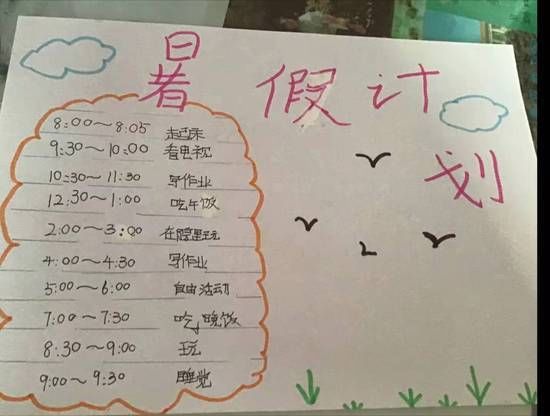 暑假计划
8:00～8:05 起床
9:30～10:00 看电视
10:30～11:30 写作业
12:30～1:00 吃午饭
2:00～3:00 在院里玩
4:00～4:30 写作业
5:00～6:00 自由活动
7:00～7:30 吃晚饭
8:30～9:00 玩
9:00～9:30 睡觉